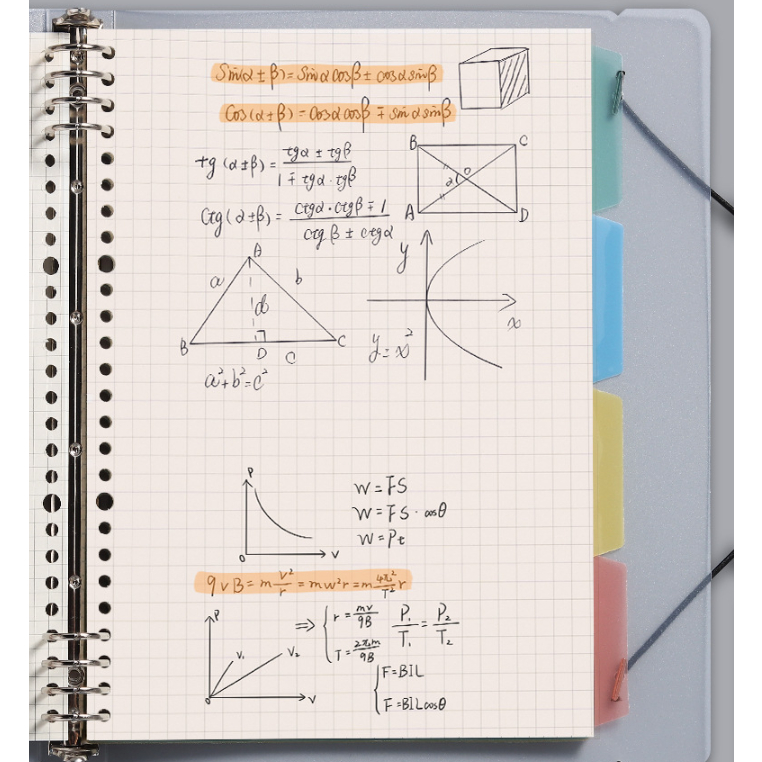 Sin(α ± β) = Sinα cosβ ± cosα sinβ
Cos(α ± β) = Cosα cosβ ∓ sinα sinβ
tg(α ± β) = (tgα ± tgβ) / (1 ∓ tgα · tgβ)
Ctg(α ± β) = (Ctgα · Ctgβ ∓ 1) / (Ctgβ ± Ctgα)
B C
α O
A D
A
a b
d
B D C
C
a² + b² = c²
y
x
y = x²
P
O V
W = FS
W = FS · cosθ
W = Pt
qvB = m v²/r = mω²r = m 4π²/T² r
P
V₁ V₂
O V
⇒ { r = mv/qB
T = 2πm/qB
P₁/T₁ = P₂/T₂
{ F = BIL
F = BIL cosθ